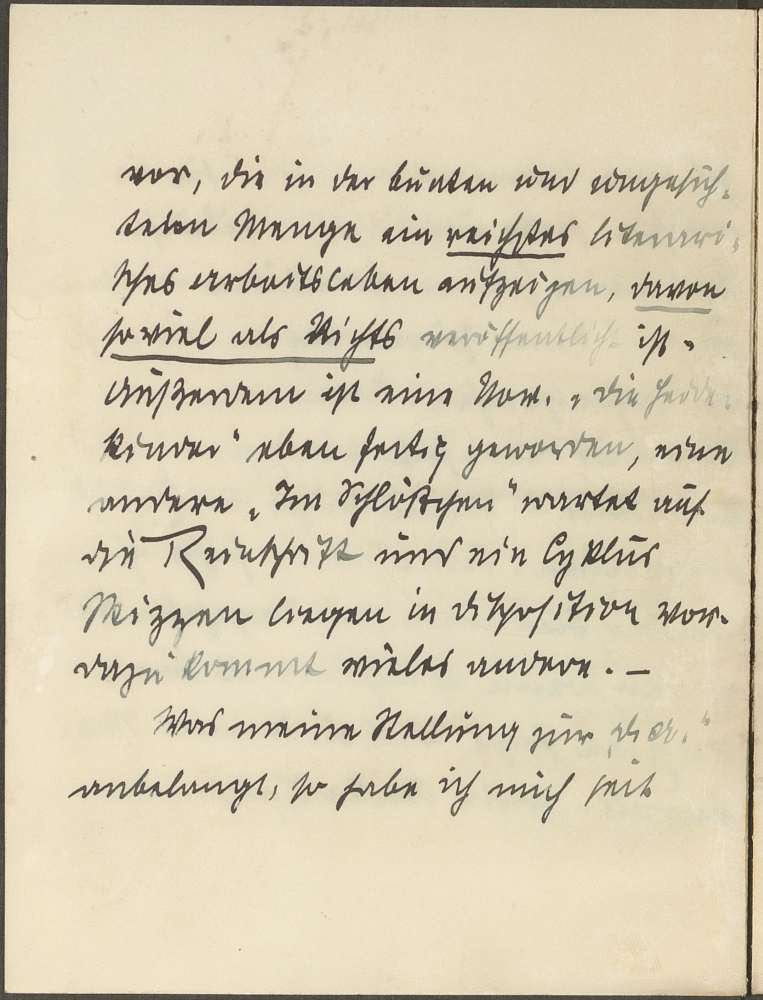 vor, die in der bunten und ungesich-
teten Menge ein reichstes literari-
sches Arbeitsleben aufzeigen, davon
so viel als Nichts veröffentlich ist.
Außerdem ist eine Nov. „Die Heide-
kinder“ eben fertig geworden, eine
andere „Im Schlößchen“ wartet auf
die Reinschrift und ein Cyklus
Skizzen liegen in Disposition vor.
dazu kommt vieles andere. –
Was meine Stellung zur
anbelangt, so habe ich mich seit